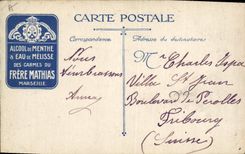 CARTE POSTALE
Correspondance
Adresse du destinataire
ALCOOL DE MENTHE
& EAU DE MÉLISSE
DES CARMES DU
FRÈRE MATHIAS
MARSEILLE
Nous
Anna
Mr Charles
Villa St Jean
Boulevard de Pérolles
Fribourg
(Suisse)